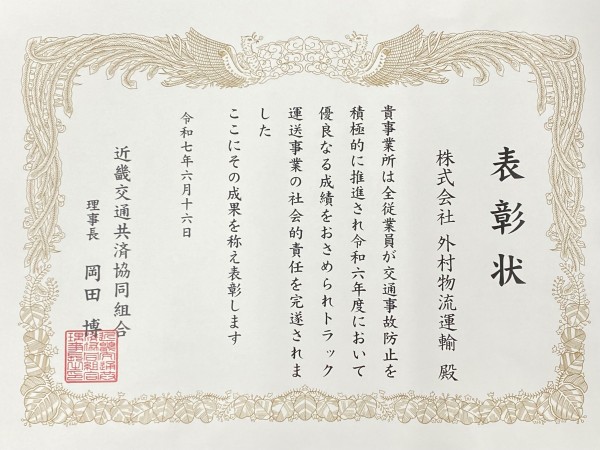 表彰状
株式会社 外村物流運輸 殿
貴事業所は全従業員が交通事故防止を
積極的に推進され令和六年度において
優良なる成績をおさめられトラック
運送事業の社会的責任を完遂されま
した
ここにその成果を称え表彰します
令和七年六月十六日
近畿交通共済協同組合
理事長 岡田 博